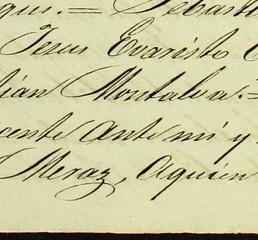 qui. = Sebasti
Jesus Evaristo C
lian Montalva. =
cente ante mi y
Meraz, Aquien